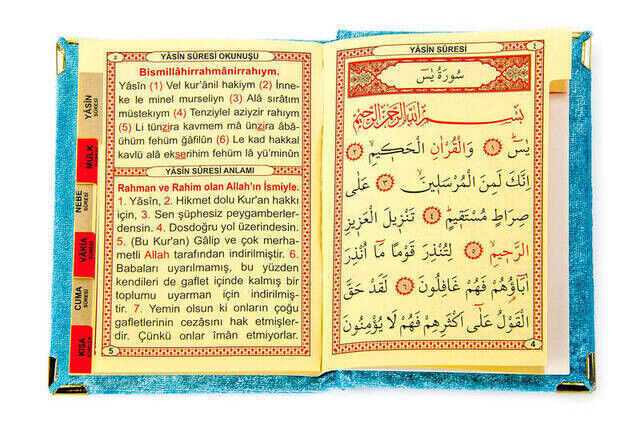 ٥
YÂSÎN SÛRESİ OKUNUŞU
Bismillâhirrahmânirrahıym.
Yâsîn (1) Vel kur'ânil hakiym (2) İnne-
ke le minel murseliyn (3) Alâ sırâtım
müstekıym (4) Tenziylel aziyzir rahıym
(5) Li tünzira kavmem mâ ünzira âbâ-
ühüm fehüm gâfilûn (6) Le kad hakkal
kavlü alâ ekserihim fehüm lâ yü'minûn
YÂSİN SÛRESİ ANLAMI
Rahman ve Rahim olan Allah'ın İsmiyle.
1. Yâsîn, 2. Hikmet dolu Kur'an hakkı
için, 3. Sen şüphesiz peygamberler-
densin. 4. Dosdoğru yol üzerindesin.
5. (Bu Kur'an) Gâlip ve çok merha-
metli Allah tarafından indirilmiştir. 6.
Babaları uyarılmamış, bu yüzden
kendileri de gaflet içinde kalmış bir
toplumu uyarman için indirilmiş-
tir. 7. Yemin olsun ki onların çoğu
gafletlerinin cezasını hak etmişler-
dir. Çünkü onlar îmân etmiyorlar.
5
YÂSÎN
SÛRESİ
MÜLK
SÛRESİ
NEBE
SÛRESİ
VÂKIA
SÛRESİ
CUMA
SÛRESİ
KISA
SÛRELER
YÂSÎN SÛRESİ
٤
سُورَةُ يٰسٓ
بِسْمِ اللّٰهِ الرَّحْمٰنِ الرَّحِيمِ
يٰسٓ ﴿١﴾ وَالْقُرْاٰنِ الْحَكٖيمِ ﴿٢﴾
اِنَّكَ لَمِنَ الْمُرْسَلٖينَ ﴿٣﴾ عَلٰى
صِرَاطٍ مُسْتَقٖيمٍ ﴿٤﴾ تَنْزٖيلَ الْعَزٖيزِ
الرَّحٖيمِ ﴿٥﴾ لِتُنْذِرَ قَوْمًا مَٓا اُنْذِرَ
اٰبَٓاؤُ۬هُمْ فَهُمْ غَافِلُونَ ﴿٦﴾ لَقَدْ حَقَّ
الْقَوْلُ عَلٰٓى اَكْثَرِهِمْ فَهُمْ لَا يُؤْمِنُونَ
4